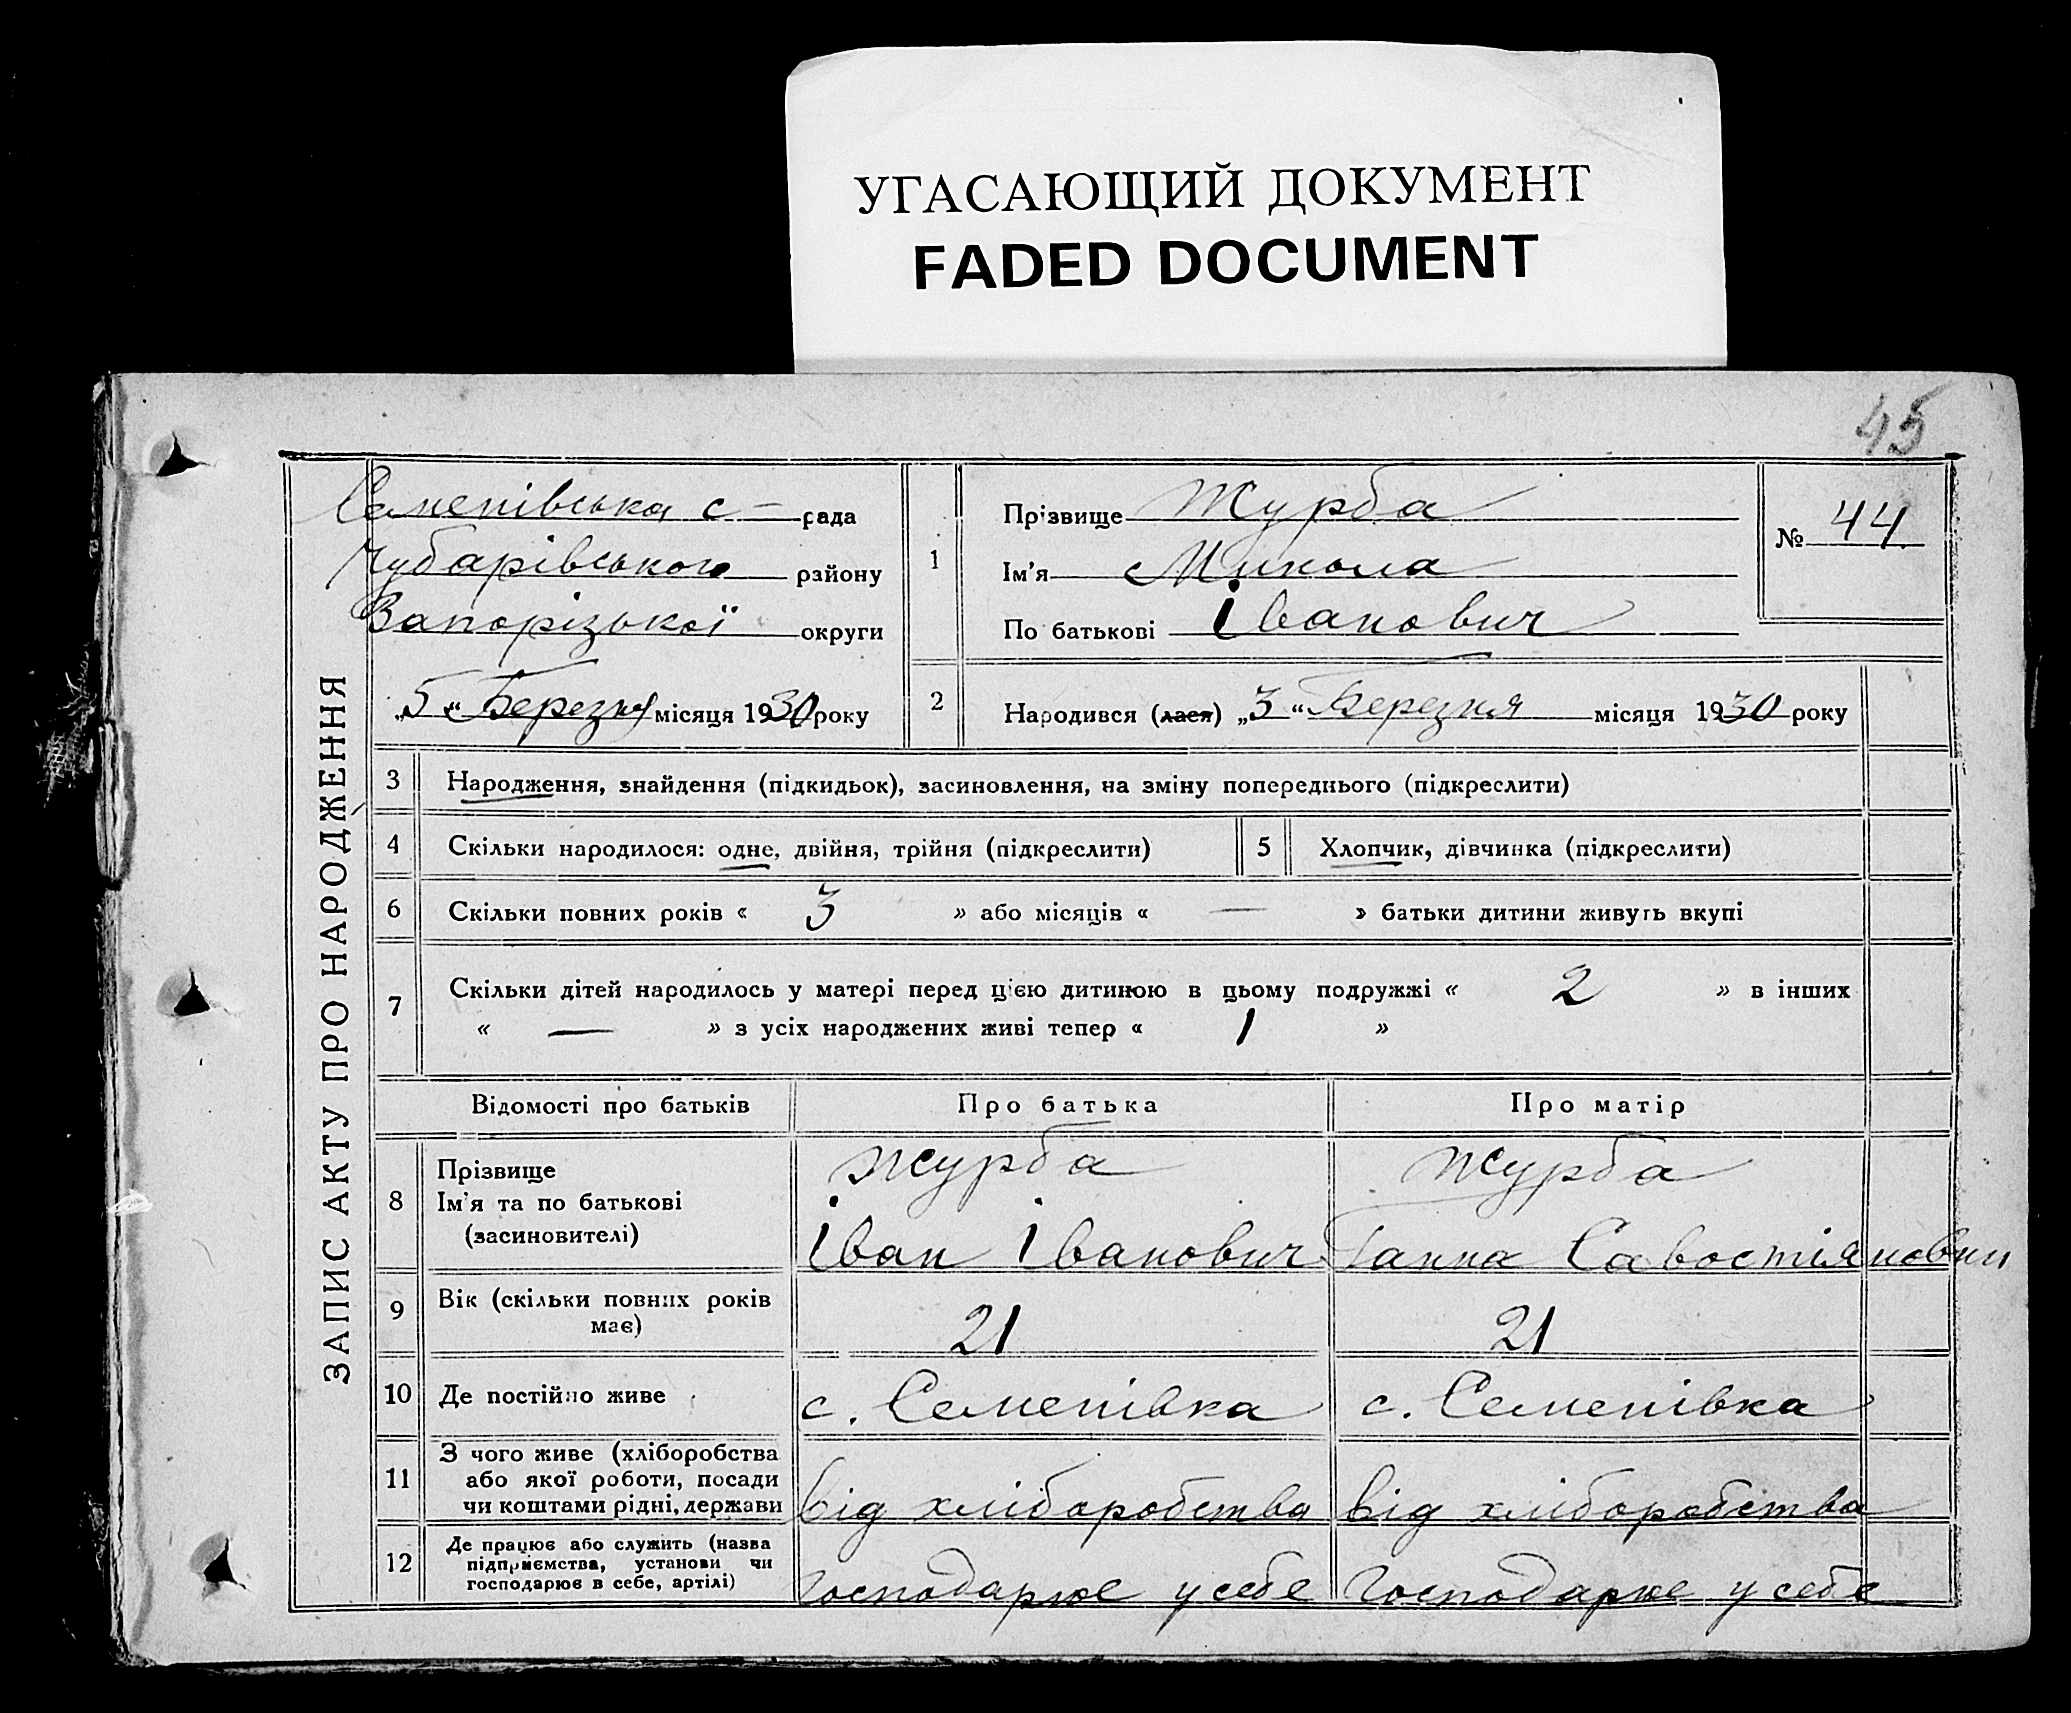 УГАСАЮЩИЙ ДОКУМЕНТ
FADED DOCUMENT
45
ЗАПИС АКТУ ПРО НАРОДЖЕННЯ
Семенівська с – рада
Чубарівського району
Запорізької округи
„5“ Березня місяця 1930 року
1
Прізвище Журба
Ім'я Микола
По батькові Іванович
№ 44
2 Народився (лася) „3“ Березня місяця 1930 року
3 Народження, знайдення (підкидьок), засиновлення, на зміну попереднього (підкреслити)
4 Скільки народилося: одне, двійня, трійня (підкреслити) 5 Хлопчик, дівчинка (підкреслити)
6 Скільки повних років « 3 » або місяців « — » батьки дитини живуть вкупі
7 Скільки дітей народилось у матері перед цією дитиною в цьому подружжі « 2 » в інших
« — » з усіх народжених живі тепер « 1 »
Відомості про батьків Про батька Про матір
8 Прізвище Журба Журба
Ім'я та по батькові
(засиновителі) Іван Іванович Ганна Савостіяновни
9 Вік (скільки повних років має) 21 21
10 Де постійно живе с. Семенівка с. Семенівка
11 З чого живе (хліборобства
або якої роботи, посади
чи коштами рідні, держави від хліборобства від хліборобства
12 Де працює або служить (назва
підприємства, установи чи
господарює в себе, артілі) господарює у себе господарює у себе